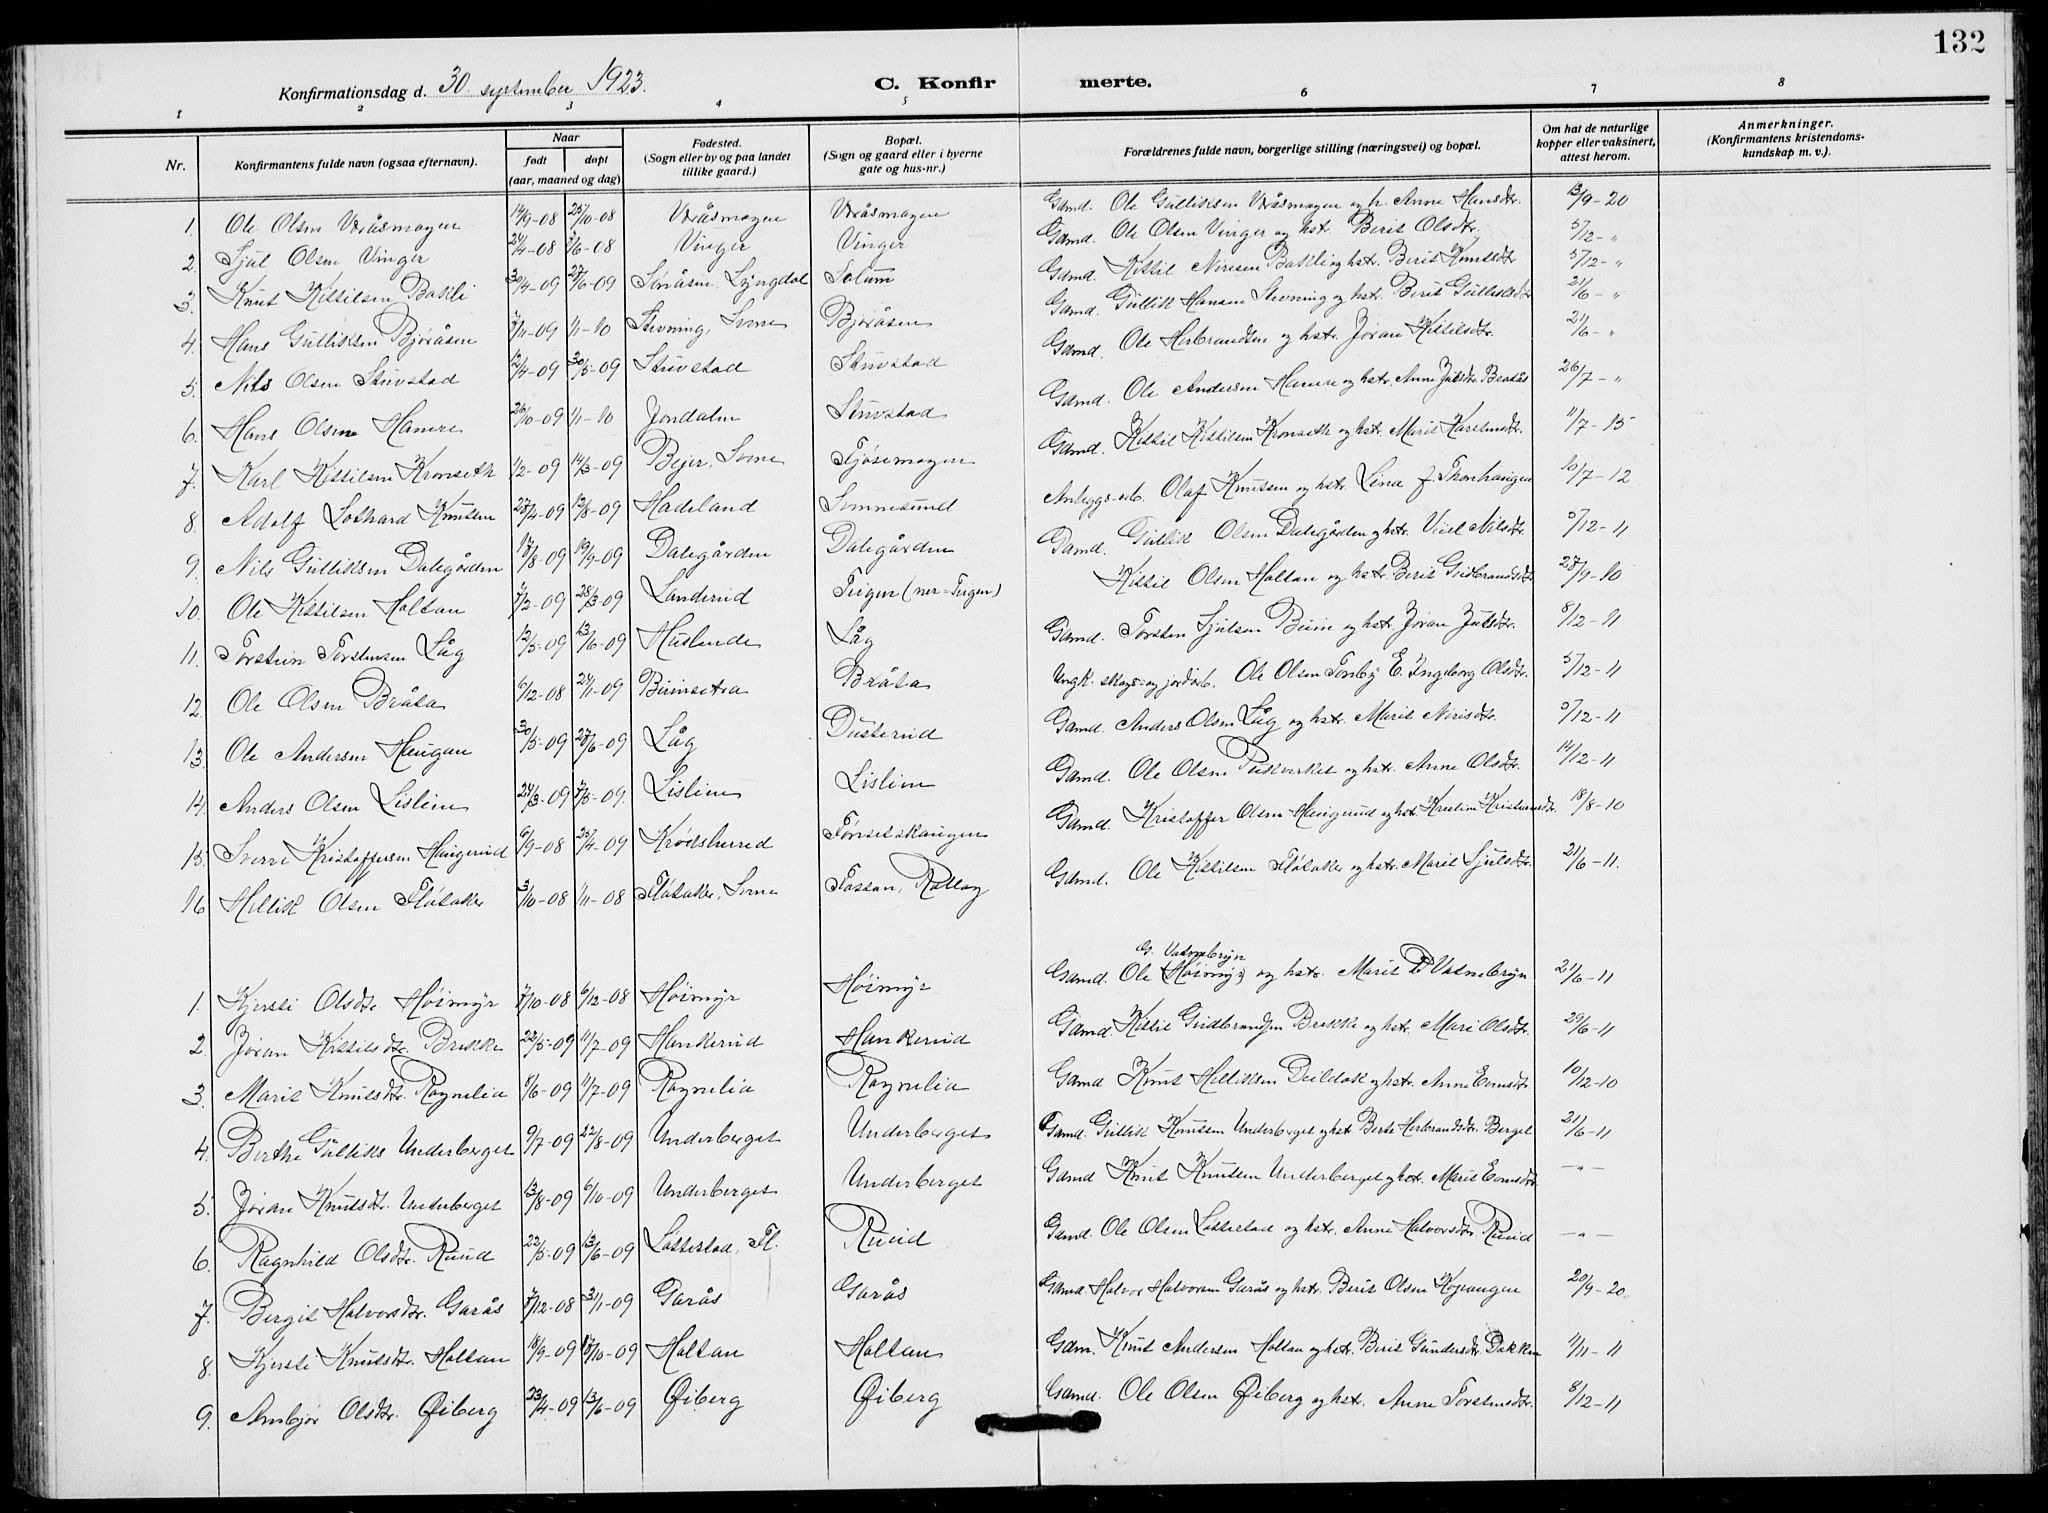 132
Konfirmationsdag d. 30. september 1923. C. Konfirmerte.
1 2 3 4 5 6 7 8
Nr. Konfirmantens fulde navn (ogsaa efternavn). Naar født døpt (aar, maaned og dag) Fødested. (Sogn eller by og paa landet tillike gaard.) Bopæl. (Sogn og gaard eller i byerne gate og hus-nr.) Forældrenes fulde navn, borgerlige stilling (næringsvei) og bopæl. Om hat de naturlige kopper eller vaksinert, attest herom. Anmerkninger. (Konfirmantens kristendomskundskap m. v.).
1. Ole Olsen Vråsmogen 14/9-08 25/10-08 Vråsmogen Vråsmogen Gamd. Ole Gulliksen Vråsmogen og h. Anne Hansdtr. 13/9-20
2. Sjul Olsen Vinger 24/4-08 /6-08 Vinger Vinger Gamd. Ole Olsen Vinger og hst. Berit Olsdtr. 5/12-"
3. Knut Kittilsen Bakli 30/4-09 27/6-09 Lyngdal Solum Gamd. Kittil Nirisen Bakli og hst. Berit Knutsdtr 5/12-"
4. Hans Gulliksen Bjøråsen /11-09 1/1-10 Stevning, Svene Bjøråsen Gamd. Gullik Hansen Stevning og hst. Berit Gulliksdtr 21/6-"
5. Nils Olsen Stuvstad 12/4-09 30/5-09 Stuvstad Stuvstad Gamd. Ole Herbrandsen og hstr. Jøran Kittilsdtr. 21/6-"
6. Hans Olsen Hamre 26/10-09 1/1-10 Jondalen Stuvstad Gamd. Ole Andersen Hamre og hstr. Anne Julsdtr. 26/7-"
7. Karl Kittilsen Kronseth 1/2-09 14/3-09 Bejer, Svene Tjøsemogen Gamd. Kittil Kittilsen Kronseth og hstr. Marit Karlsendtr. 11/7-15
8. Adolf Lothard Knutsen 27/4-09 12/8-09 Hadeland Simmesund Anleggs-arb. Olaf Knutsen og hstr. Lina f. Thonhaugen 10/7-12
9. Nils Gulliksen Dalegården 18/8-09 19/9-09 Dalegården Dalegården Gamd. Gullik Olsen Dalegården og hstr. Nilsdtr 5/12-11
10. Ole Kittilsen Holtan 7/2-09 28/3-09 Landerud Teigen (ner-Teigen) Kittil Olsen Holtan og hstr. Berit Gudbrandsdtr 28/9-10
11. Torstein Torstensen Låg 12/5-09 13/6-09 Huslende Låg Gamd. Torsten Sjulsen Buin og hstr. Jøran Julsdtr. 8/12-11
12. Ole Olsen Bråta 6/12-08 24/1-09 Birisetra Bråta Ungk. skogs- og jordarb. Ole Olsen Foseby E. Ingeborg Olsdtr. 5/12-11
13. Ole Andersen Haugan 30/5-09 27/6-09 Låg Dusterud Gamd. Anders Olsen Låg og hstr. Marit Nirisdtr. 5/12-11
14. Anders Olsen Lislien 24/3-09 /5-09. Lislien Lislien Gamd. Ole Olsen Pukverket og hstr. Anne Olsdtr. 14/12-11
15. Sverre Kristoffersen Haugerud 6/9-08 25/4-09 Krødsherred Tønsetskaugen Gamd. Kristoffer Olsen Haugerud og hst. Kristine Kristiansdtr. 18/8-10
16 Hellik Olsen Fløtaker 3/10-08 1/11-08 Fløtaker, Svene Tossan, Rollag Gamd. Ole Kittilsen Fløtaker og hstr. Marit Sjulsdtr. 21/6-11.
1. Kjersti Olsdtr. Høimyr /10-08 6/12-08 Høimyr Høimyr Gamd. Ole G. Vatnebryn (Høimyr) og hstr. Marit Vatnebryn 21/6-11
2. Jøran Kittilsdtr. Brekke 22/5-09 11/7-09 Hankerud Hankerud Gamd. Kittil Gudbrandsen Brekke og hst. Mari Olsdtr. 29/6-11
3. Marit Knutsdtr. Rognelia 8/6-09 11/7-09 Rognelia Rognelia Gamd Knut Helliksen Deildok og hst. Anne Evensdtr. 10/12-10
4. Berthe Gulliks Underberget 9/7-09 22/8-09 Underberget Underberget Gamd. Gullik Knutsen Underberget og hst. Berte Herbrandsdtr. Berget 21/6-11
5. Jøran Knutsdtr. Underberget 13/8-09 6/10-09 Underberget Underberget Gamd Knut Knutsen Underberget og hst. Marit Evensdtr. -"-
6. Ragnhild Olsdtr. Ruud 22/5-09 13/6-09 Lottestad, Fl. Ruud Gamd. Ole Olsen Lottestad og hstr. Anne Halvorsdtr. Ruud -"-
7. Bergit Halvorsdtr. Garås /12-08 31/1-09 Garås Garås Gamd. Halvor Halvorsen Garås og hstr. Berit Olsen 20/9-20.
8. Kjersti Knutsdtr. Holtan 18/9-09 18/10-09 Holtan Holtan Gdm. Knut Andersen Holtan og hst. Berit Gundersdtr. Dokken 1/11-11
9. Ambjør Olsdtr. Øiberg 23/4-09 13/6-09 Øiberg Øiberg Gamd. Ole Olsen Øiberg og hst. Anne Torstensdtr. 8/12-11